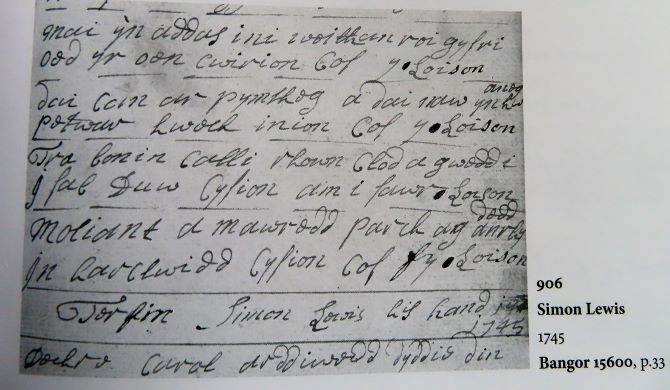 mai yn addas ini weithan roi gyfri
oed yr oen cwirion Cof y Loison
dai Can ar pymtheg a dai naw
Petwar hwech inion Cof y Loison
Tra bonin Calli rhown Clod a gweddi
I fab Duw Cyfion am i fawr Loison
dodd
Moliant a mawredd parch ag anrhy
In harclwidd Cyfion Cof fy Loison
Terfin Simon Lewis his hand
1745
Dechre Carol ar ddiwedd dyddie din
906
Simon Lewis
1745
Bangor 15600, p.33